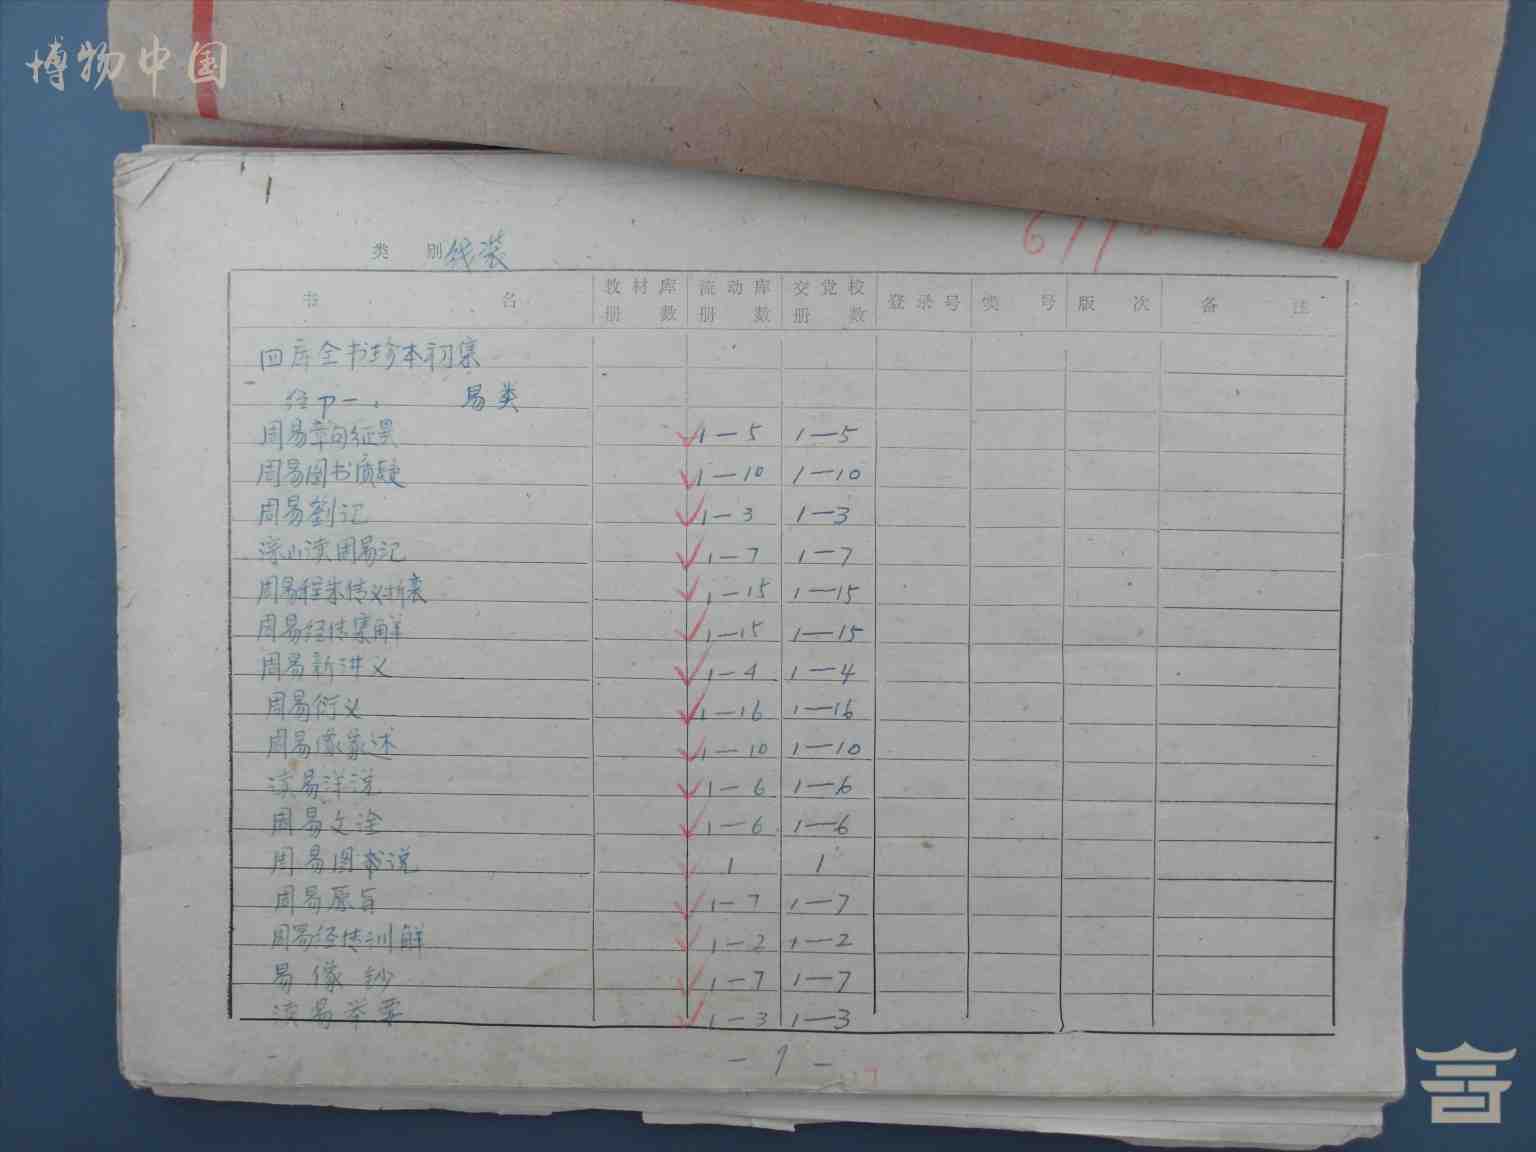 博物中国
677
类 别 线装
书 名 教材库册数 流动库册数 交党校册数 登录号 类号 版次 备注
四库全书珍本初集
经卩一. 易类
周易章句征异 1—5 1—5
周易图书质疑 1—10 1—10
周易劄记 1—3 1—3
淙山读周易记 1—7 1—7
周易程朱传义折衷 1—15 1—15
周易经传集解 1—15 1—15
周易新讲义 1—4 1—4
周易衍义 1—16 1—16
周易像象述 1—10 1—10
读易详说 1—6 1—6
周易文诠 1—6 1—6
周易图书说 1 1
周易原旨 1—7 1—7
周易经传训解 1—2 1—2
易像钞 1—7 1—7
读易举要 1—3 1—3
—1—